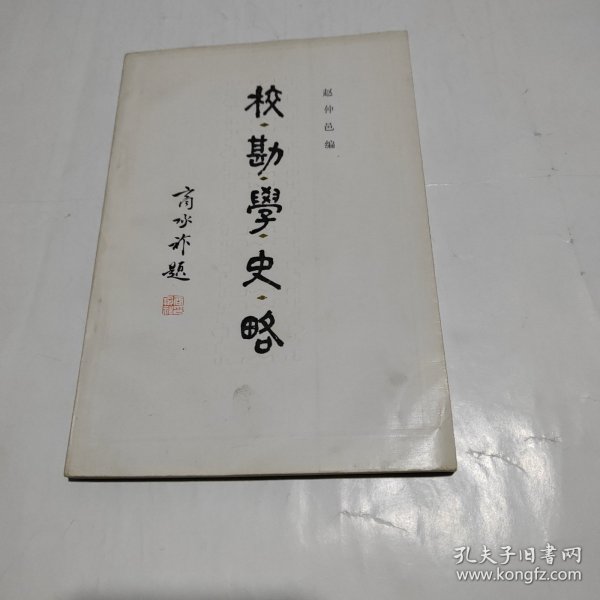 赵仲邑编
校·勘·學·史·略
商承祚題
孔夫子旧书网
www.kongfz.com